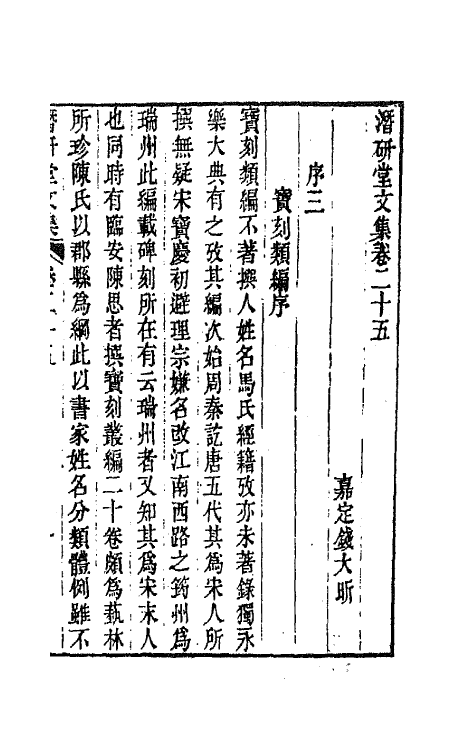 潛研堂文集卷二十五
嘉定錢大昕
序三
寶刻類編序
寶刻類編不著撰人姓名馬氏經籍攷亦未著錄獨永
樂大典有之攷其編次始周秦訖唐五代其爲宋人所
撰無疑宋寶慶初避理宗嫌名改江南西路之筠州爲
瑞州此編載碑刻所在有云瑞州者又知其爲宋末人
也同時有臨安陳思者撰寶刻叢編二十卷頗爲藝林
所珍陳氏以郡縣爲綱此以書家姓名分類體例雖不